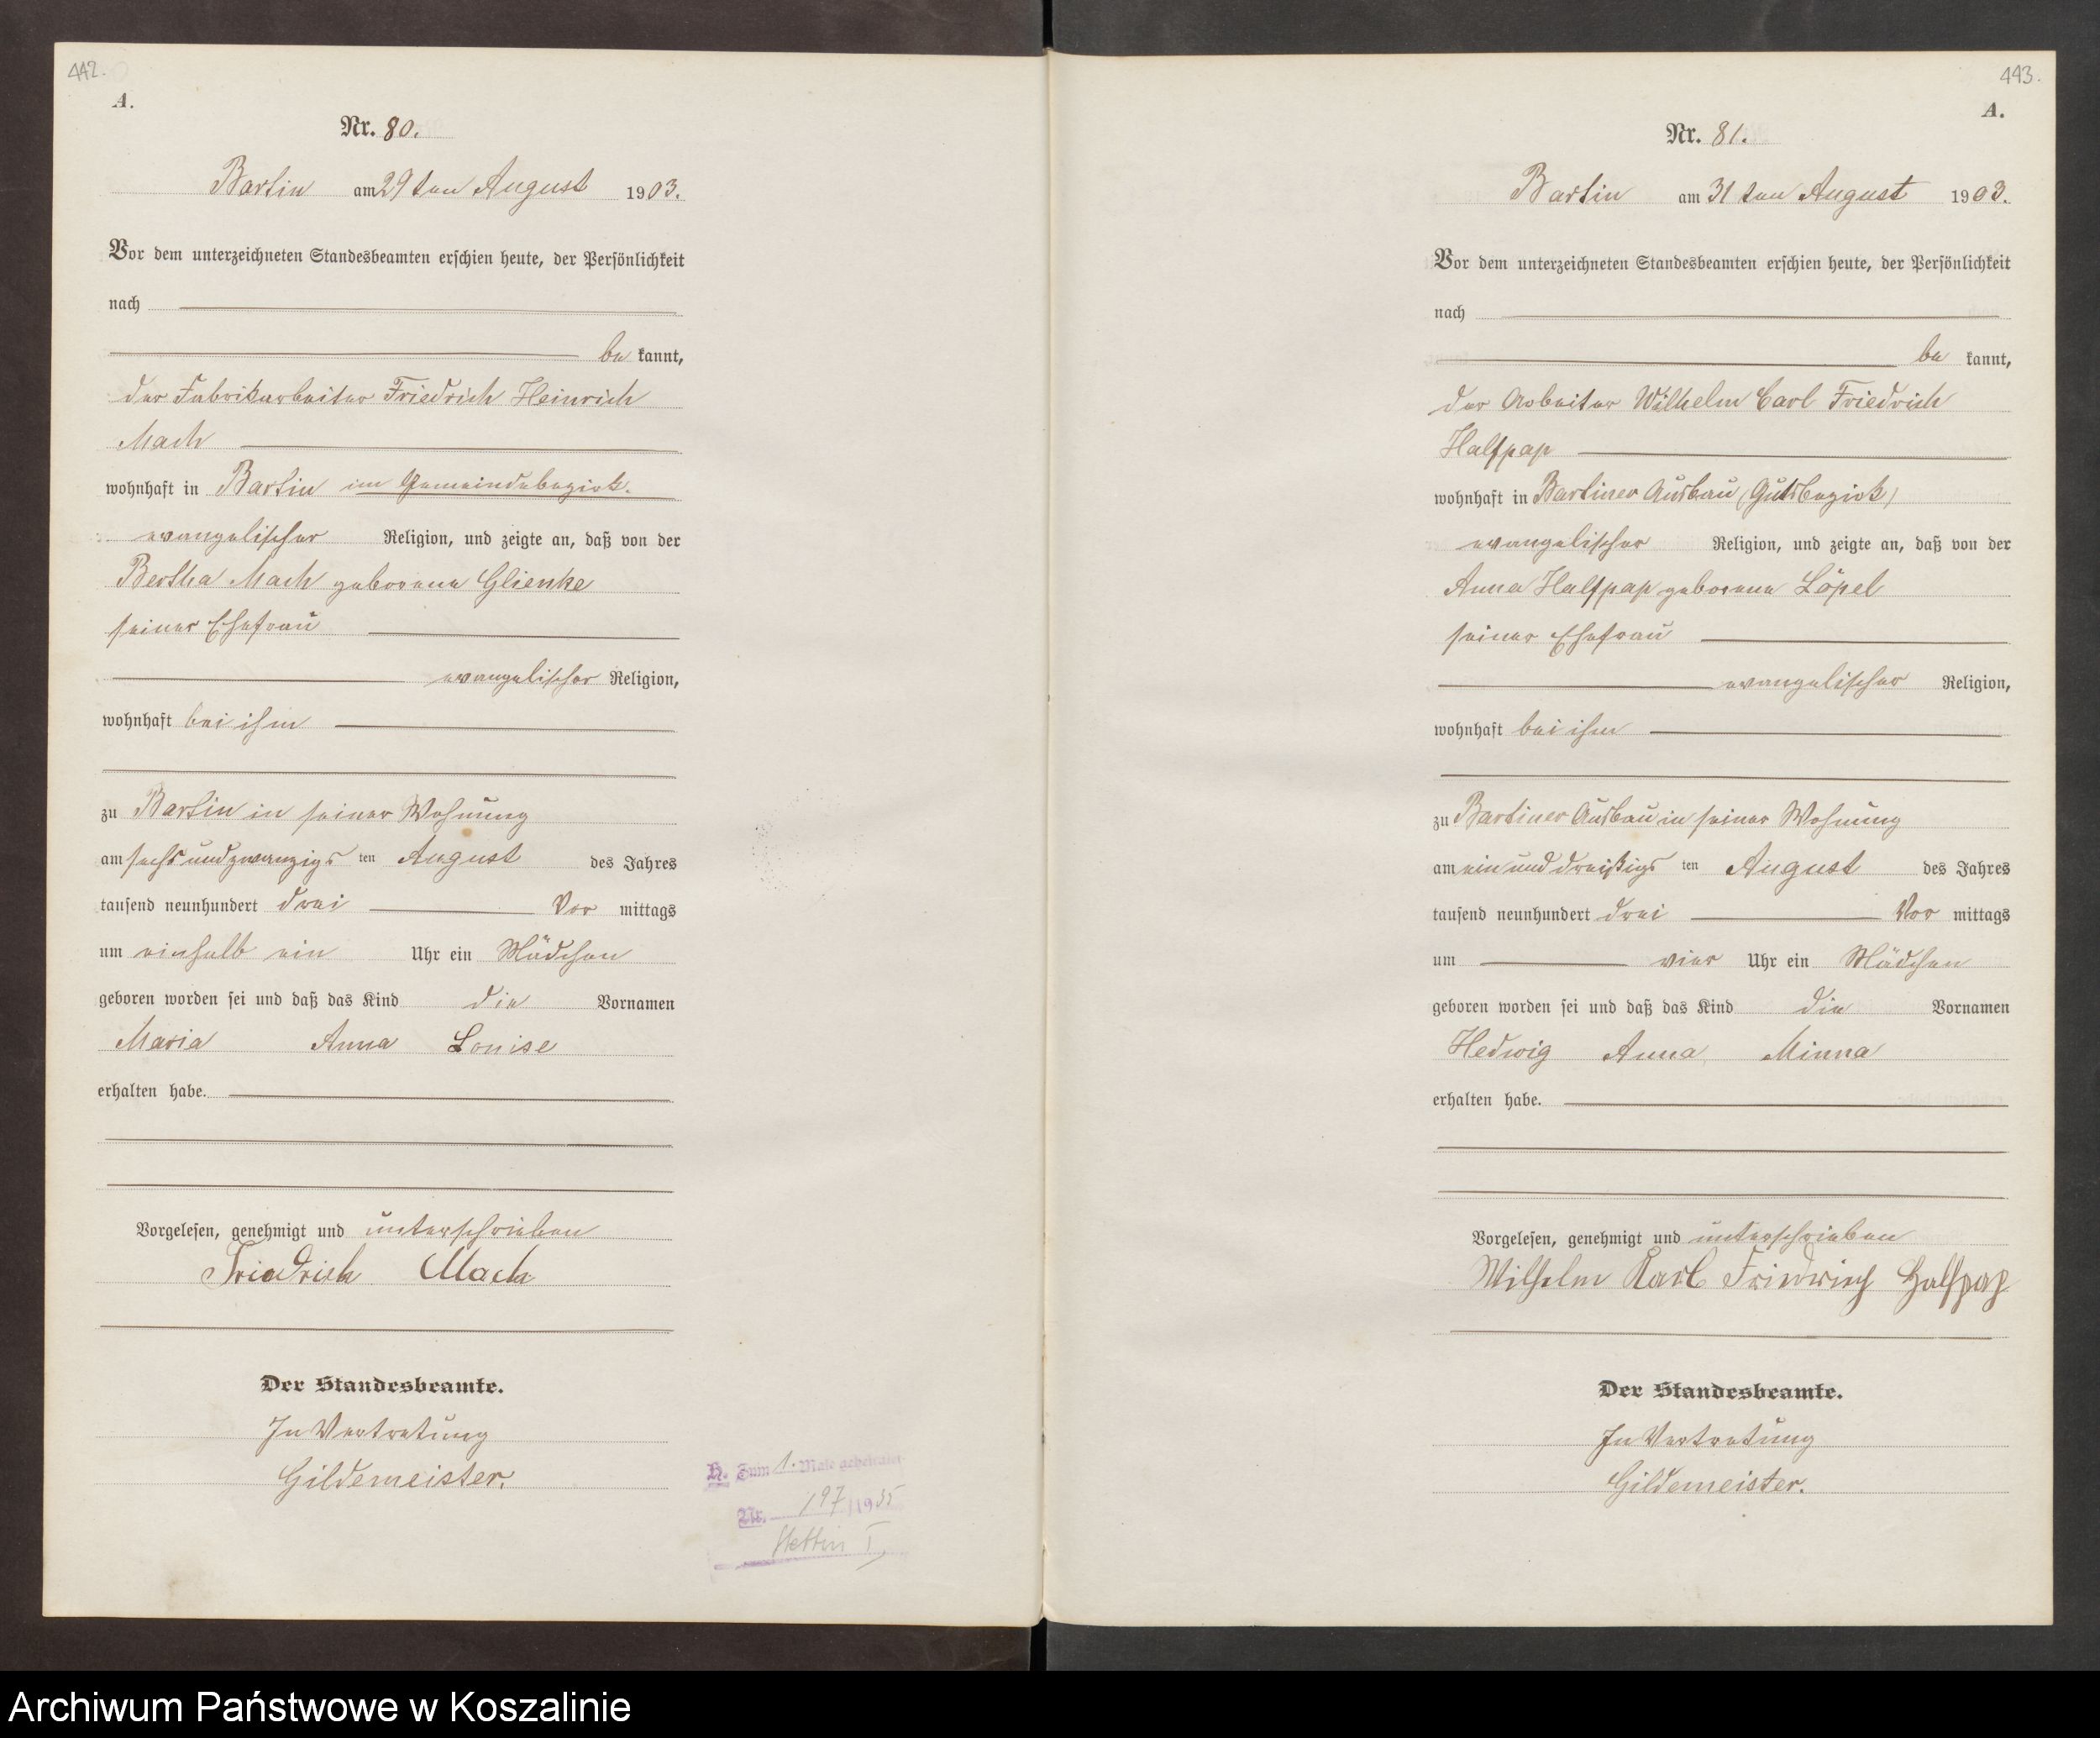 442.
A.
Nr. 80.
Bartin am 29 ten August 1903.
Vor dem unterzeichneten Standesbeamten erschien heute, der Persönlichkeit
nach
be kannt,
der Fabrikarbeiter Friedrich Heinrich
Mach
wohnhaft in Bartin im Gemeindebezirk.
evangelischer Religion, und zeigte an, daß von der
Bertha Mach geborene Glienke
seiner Ehefrau
evangelischer Religion,
wohnhaft bei ihm
zu Bartin in seiner Wohnung
am sechs und zwanzigs ten August des Jahres
tausend neunhundert drei Vor mittags
um einhalb ein Uhr ein Mädchen
geboren worden sei und daß das Kind die Vornamen
Maria Anna Louise
erhalten habe.
Vorgelesen, genehmigt und unterschrieben
Friedrich Mach
Der Standesbeamte.
In Vertretung
Gildemeister.
H. Zum 1. Male geheiratet
Nr. 197/1935
Stettin I
443.
A.
Nr. 81.
Bartin am 31 ten August 1903.
Vor dem unterzeichneten Standesbeamten erschien heute, der Persönlichkeit
nach
be kannt,
der Arbeiter Wilhelm Carl Friedrich
Halfpap
wohnhaft in Bartiner Ausbau (Gutsbezirk)
evangelischer Religion, und zeigte an, daß von der
Anna Halfpap geborene Löpel
seiner Ehefrau
evangelischer Religion,
wohnhaft bei ihm
zu Bartiner Ausbau in seiner Wohnung
am ein und dreißigs ten August des Jahres
tausend neunhundert drei Vor mittags
um vier Uhr ein Mädchen
geboren worden sei und daß das Kind die Vornamen
Hedwig Anna Minna
erhalten habe.
Vorgelesen, genehmigt und unterschrieben
Wilhelm Karl Friedrich Halfpap
Der Standesbeamte.
In Vertretung
Gildemeister.
Archiwum Państwowe w Koszalinie